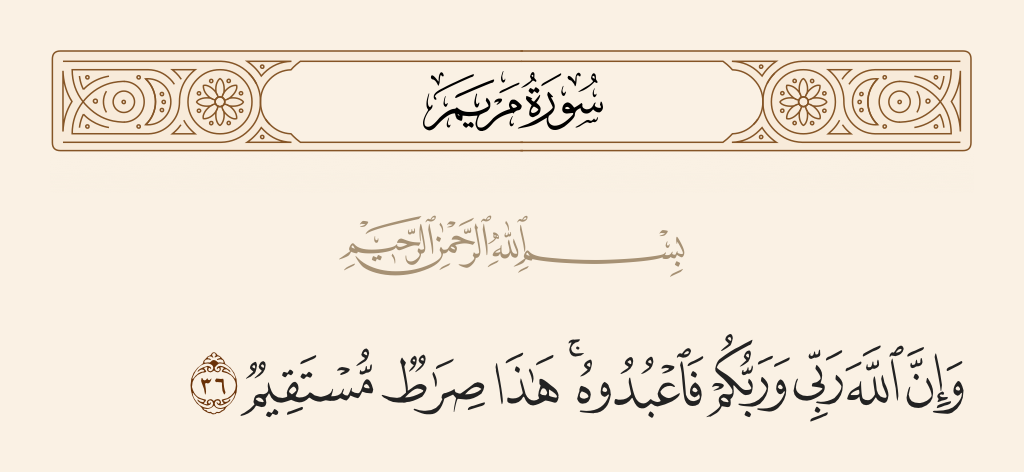 سُورَةُ مَرْيَمَ
بِسْمِ ٱللَّهِ ٱلرَّحْمَٰنِ ٱلرَّحِيمِ
وَإِنَّ ٱللَّهَ رَبِّى وَرَبُّكُمْ فَٱعْبُدُوهُ ۚ هَٰذَا صِرَٰطٌ مُّسْتَقِيمٌ ٣٦